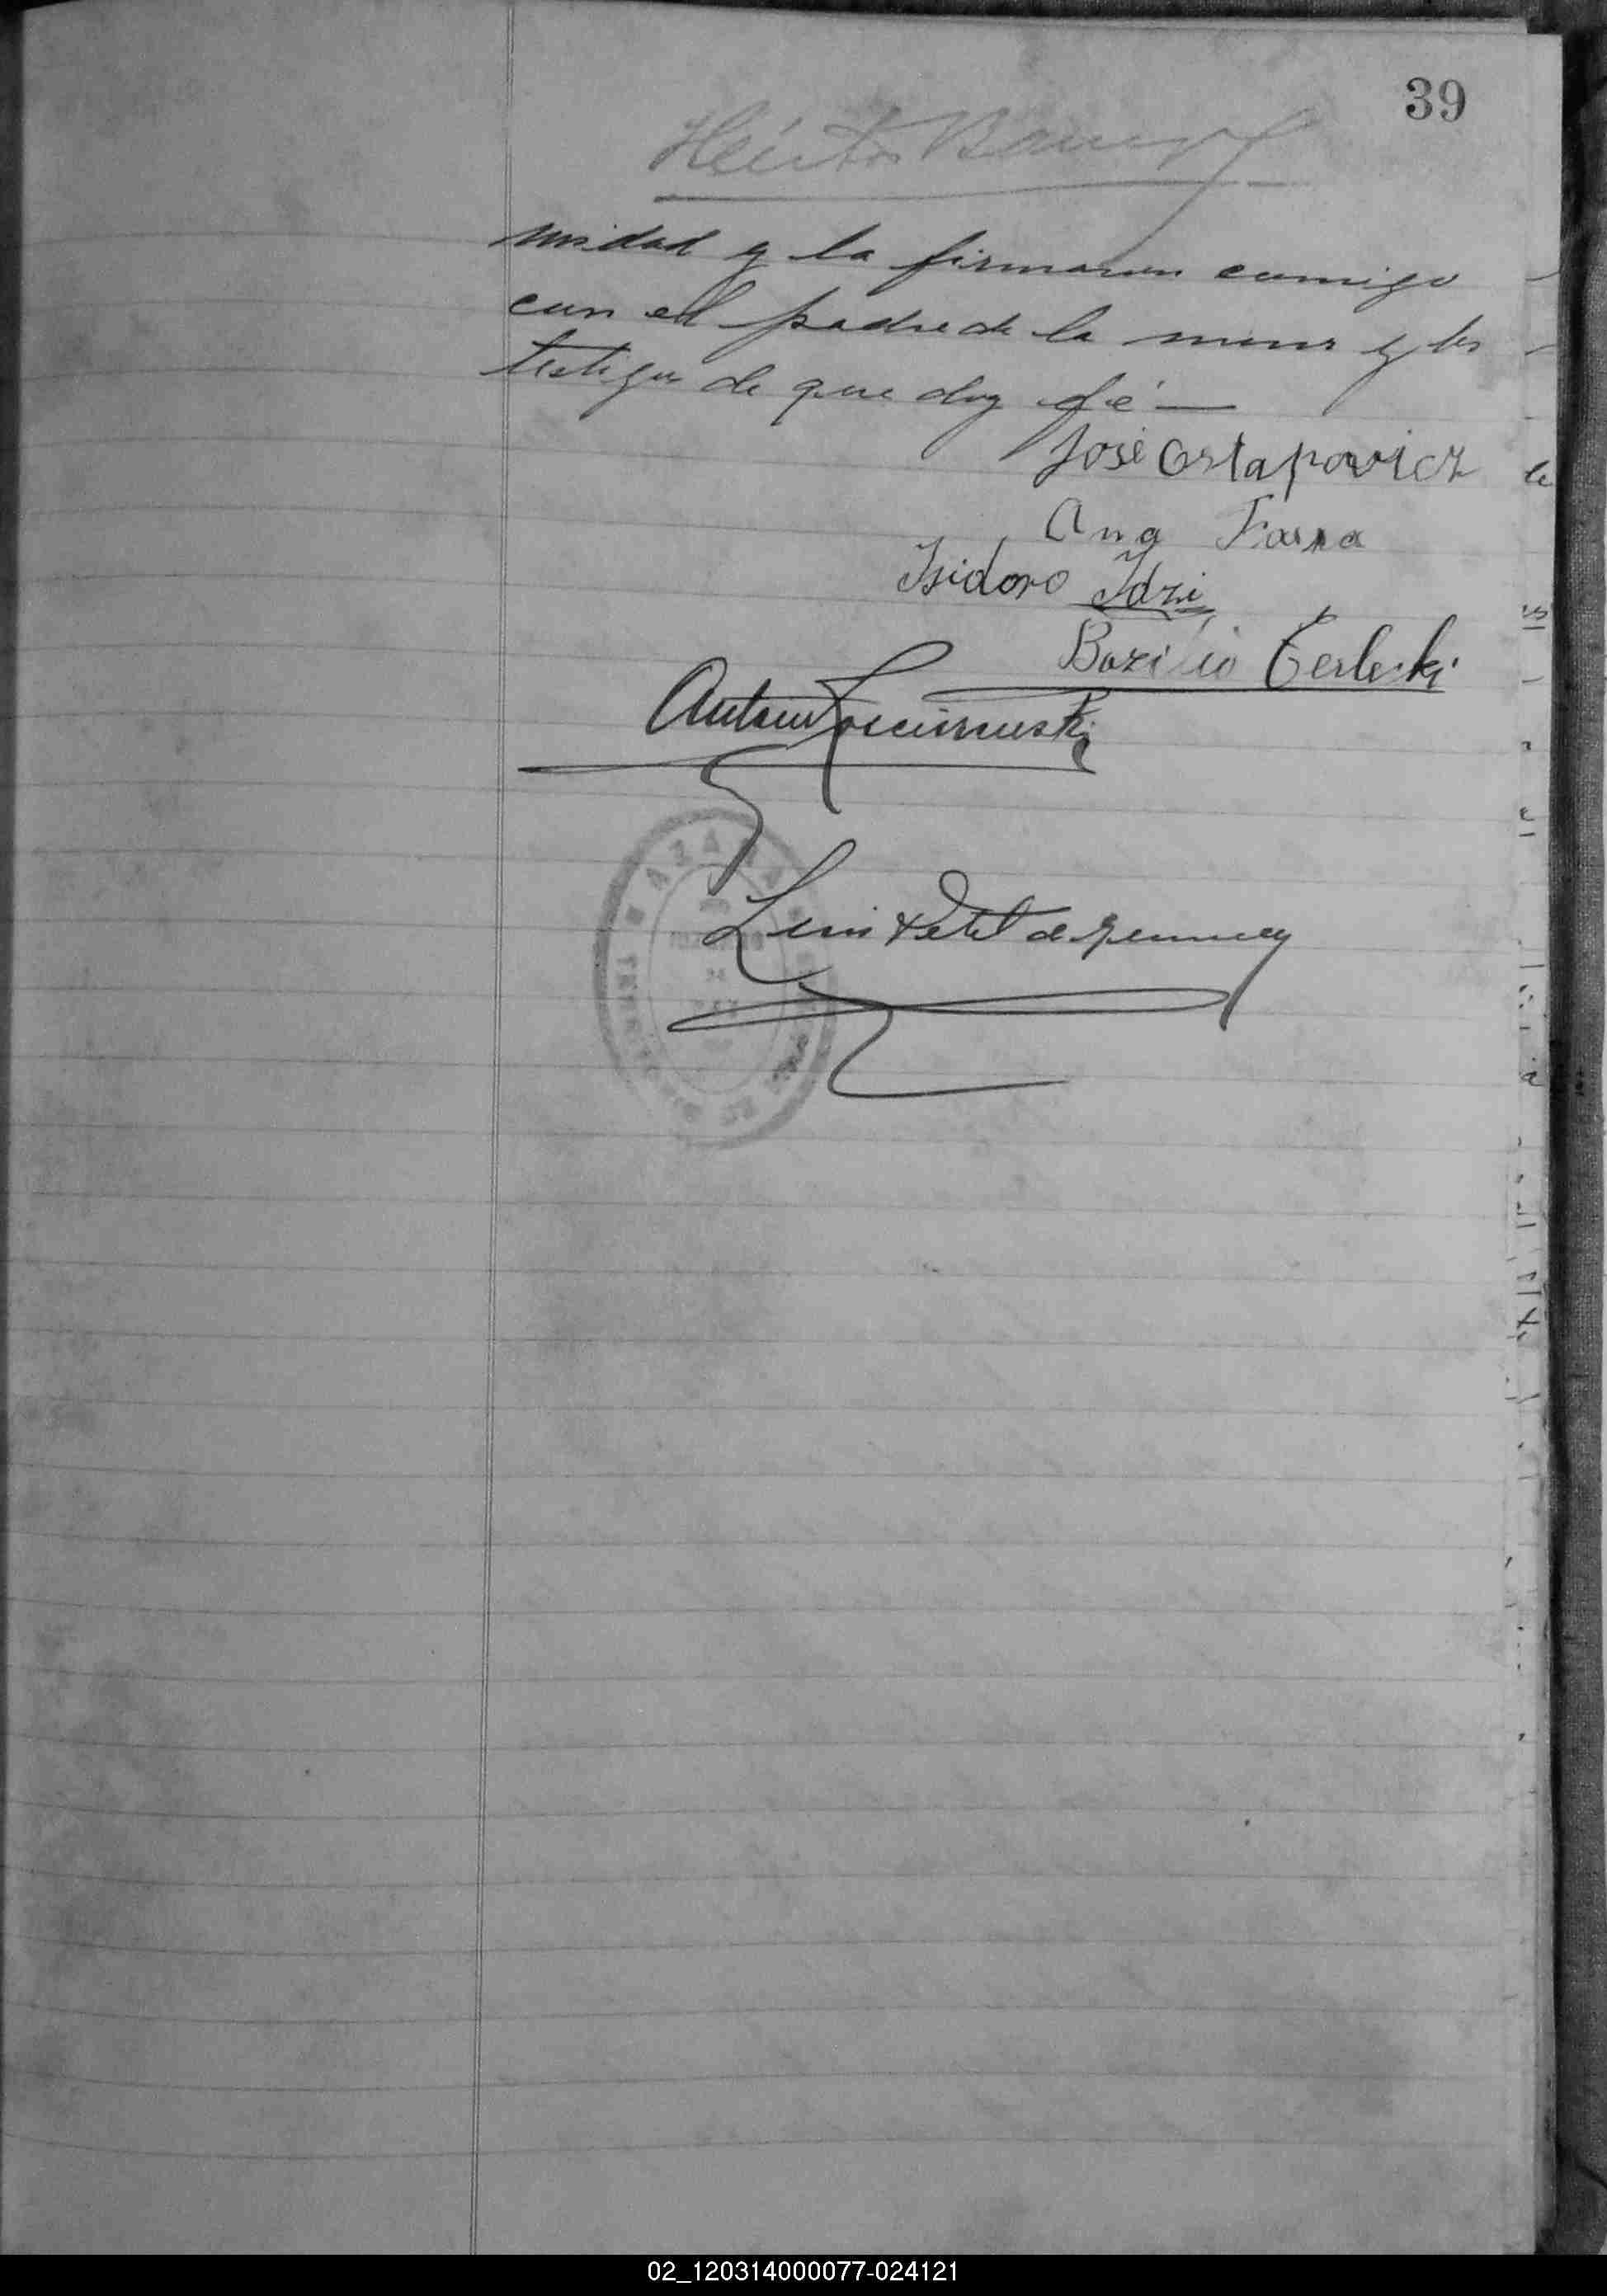 39
Héctor
midad y la firmaron comigo
con el padre de la menor y los
testigos de que doy fé —
José Ostapowicz
Ana
Isidoro Idzi
Bazilio Terlecki
Antonio
Luis Petit de
02_120314000077-024121